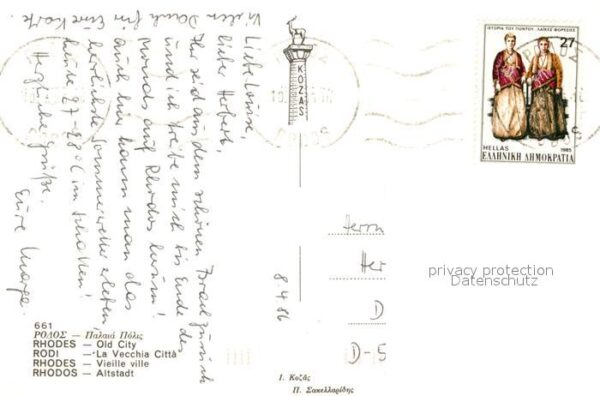 Vielen Dank für Eure Karte.
Liebe Luise,
lieber Herbert,
Ihr seid aus dem schönen Brasil zurück
und ich treibe mich bis Ende des
Monats auf Rhodos herum!
Auch hier kann man das
herrlichste Sommerwetter erleben,
heute 27-28°C im Schatten!
Herzliche Grüße,
Eure Marga.
8.4.86
KOZAS
ΙΣΤΟΡΙΑ ΤΟΥ ΠΟΝΤΟΥ - ΛΑΪΚΕΣ ΦΟΡΕΣΙΕΣ
27
HELLAS 1985
ΕΛΛΗΝΙΚΗ ΔΗΜΟΚΡΑΤΙΑ
Herrn
D
D-5
privacy protection
Datenschutz
661
ΡΟΔΟΣ — Παλαιά Πόλις
RHODES — Old City
RODI — La Vecchia Città
RHODES — Vieille ville
RHODOS — Altstadt
Ι. Κοζάς
Π. Σακελλαρίδης